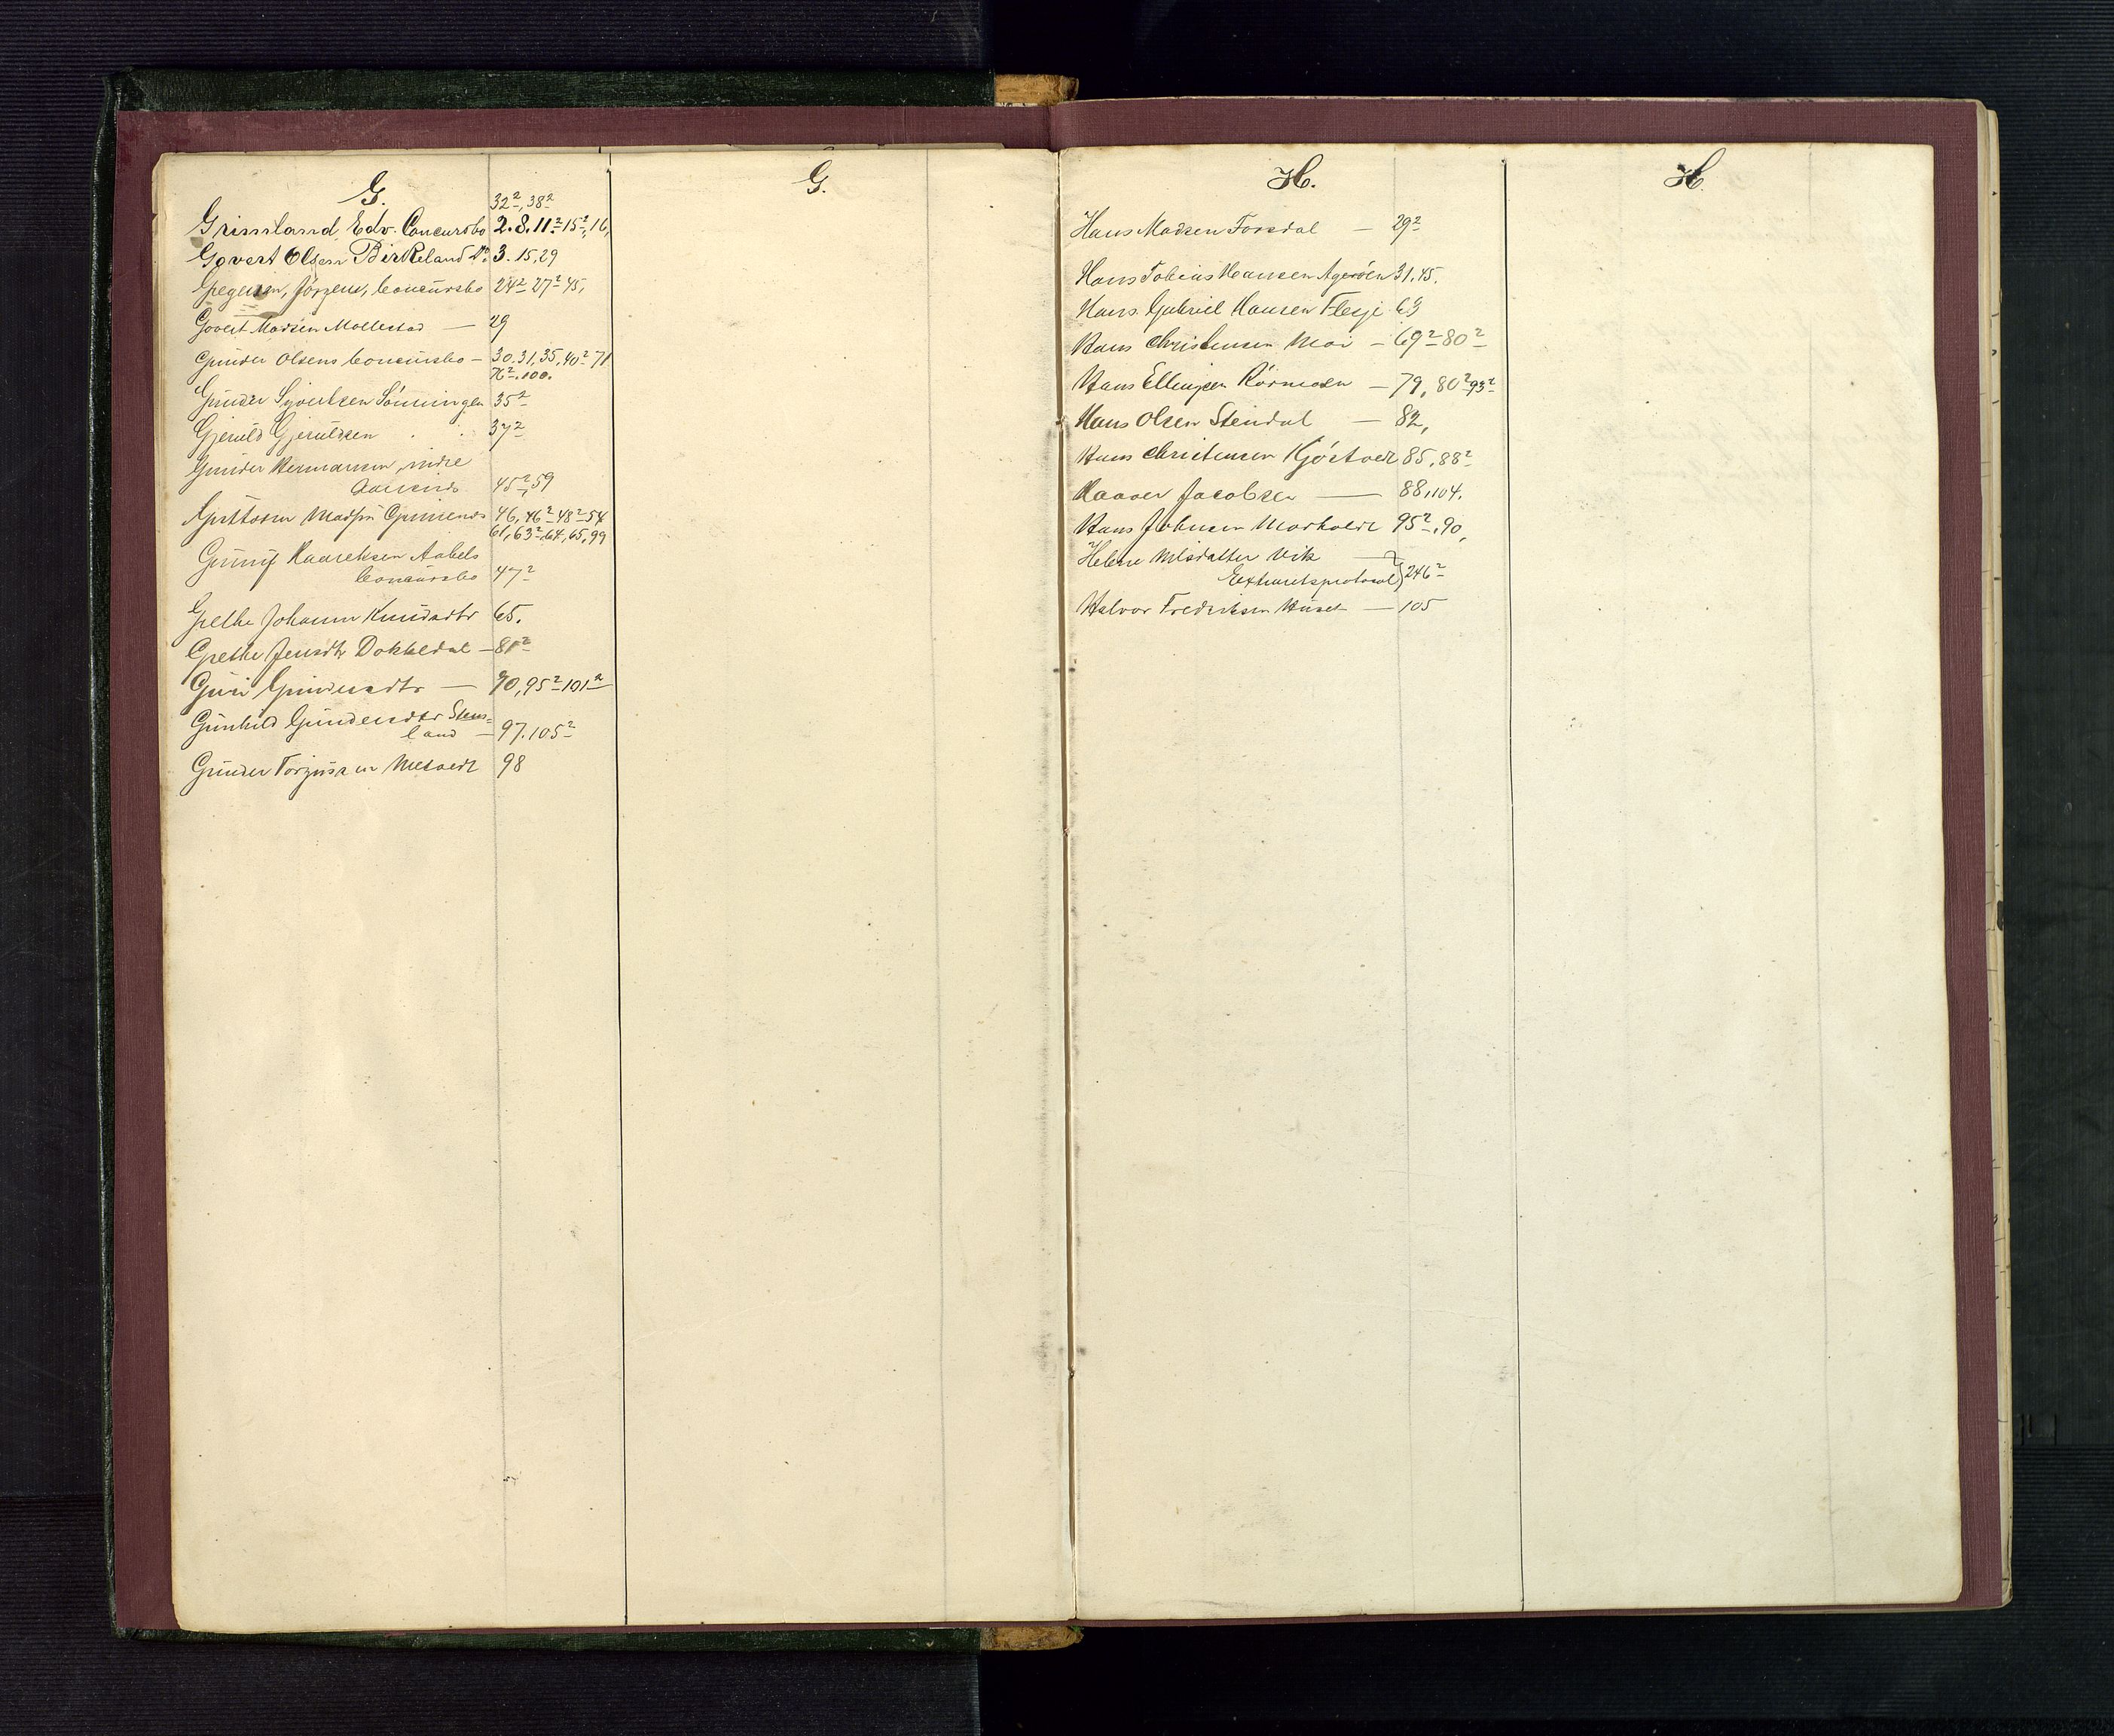 G.
32², 38²
Grimland Edv. Concursbo 2. 8. 11² 15², 16,
Govert Olsen Birkeland Do 3. 15, 29
Gregersen, Jörgens, Concursbo 24² 27² 45,
Govert Madsen Mollestad — 29
Gunder Olsens Concursbo — 30. 31, 35, 40² 71
76². 100.
Gunder Syvertsen Lönningen 35²
Gjeruld Gjeruldsen 37²
Gunder Hermansen, indre
45², 59
Madsen 46, 46² 48² 54
61, 63², 64, 65, 99
Aabels
Concursbo 47²
Grethe Johanne Knudsdtr 65.
Grethe Jensdtr Dokkedal — 81²
Guri Gundersdtr — 90, 95² 101²
Gunhild Gundersdtr Stens=
land — 97. 105²
Gunder Torjussen 98
G.
H.
Hans Madsen Forsdal — 29²
Hans Tobias Hansen Ageröen 31, 45.
Hans Gabriel Hansen Flesje 63
Hans Christensen Moi — 69² 80²
Hans Ellingsen Rörmoen — 79, 80² 93²
Hans Olsen Stendal — 82,
Hans Christensen Kjöstvedt 85, 88²
Haaver Jacobsen — 88, 104.
Hans Johnsen 95², 90,
Helene Nilsdatter Vik —
Extraretsprotocol } 246²
Halvor Fredriksen Huset — 105
H.